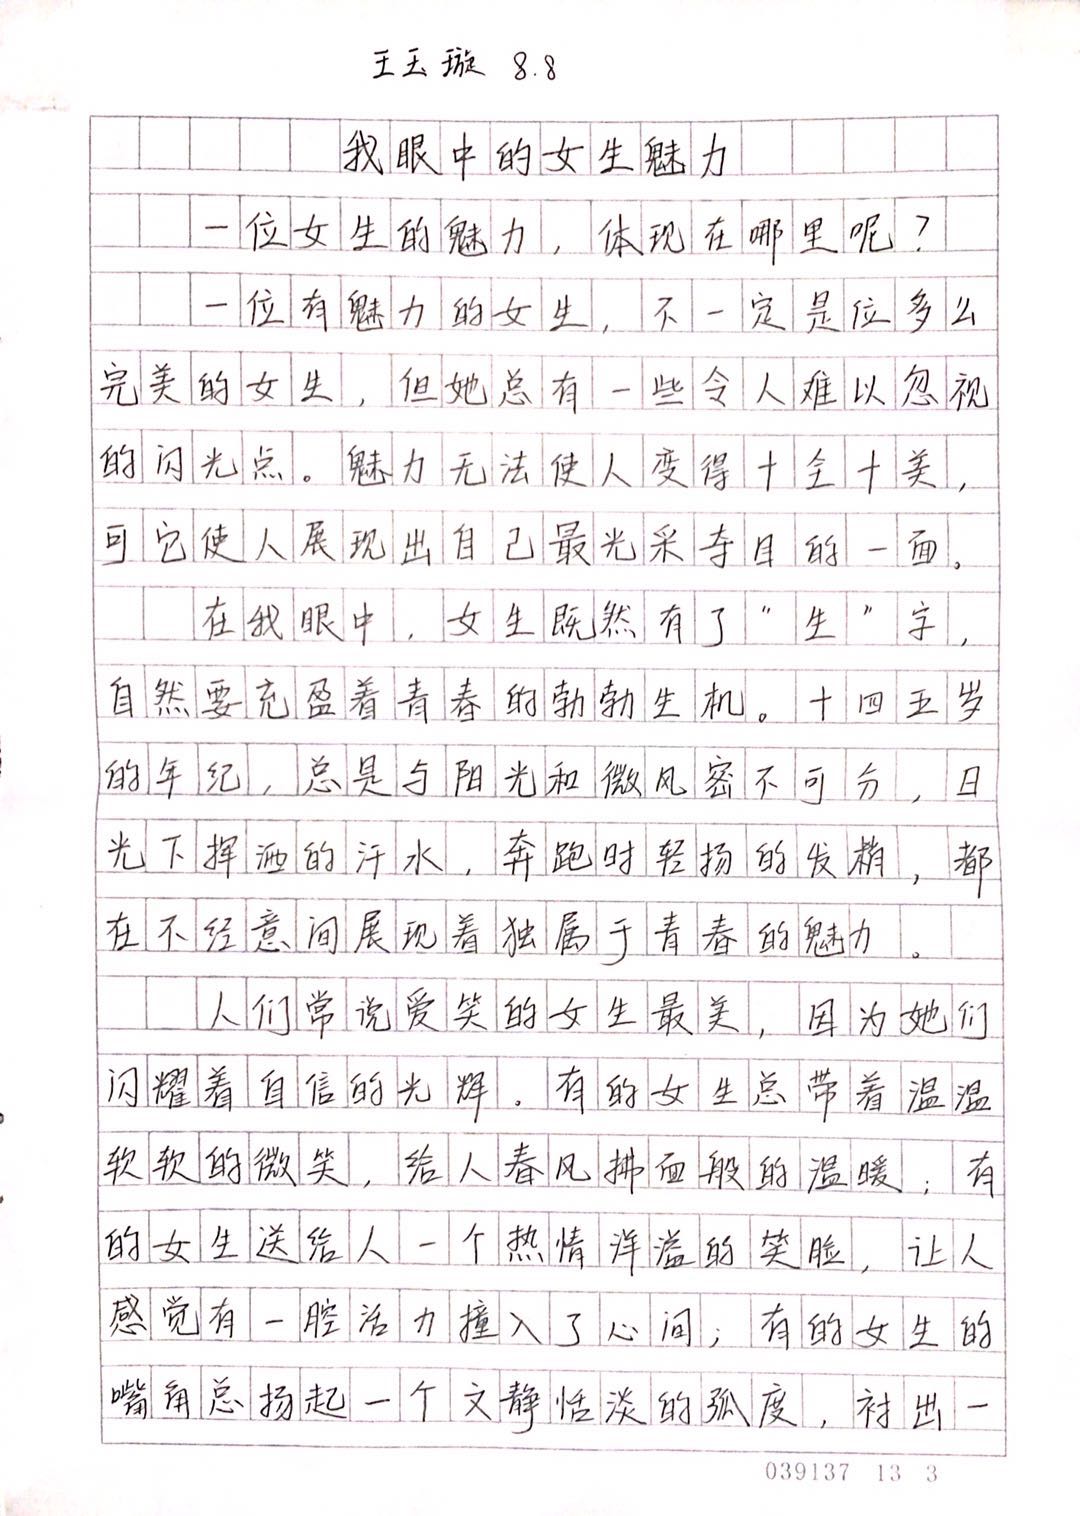 王玉璇 8.8
我眼中的女生魅力
一位女生的魅力，体现在哪里呢？
一位有魅力的女生，不一定是位多么
完美的女生，但她总有一些令人难以忽视
的闪光点。魅力无法使人变得十全十美，
可它使人展现出自己最光采夺目的一面。
在我眼中，女生既然有了“生”字，
自然要充盈着青春的勃勃生机。十四五岁
的年纪，总是与阳光和微风密不可分，日
光下挥洒的汗水，奔跑时轻扬的发梢，都
在不经意间展现着独属于青春的魅力。
人们常说爱笑的女生最美，因为她们
闪耀着自信的光辉。有的女生总带着温温
软软的微笑，给人春风拂面般的温暖；有
的女生送给人一个热情洋溢的笑脸，让人
感觉有一腔活力撞入了心间；有的女生的
嘴角总扬起一个文静恬淡的弧度，衬出一
039137 13 3